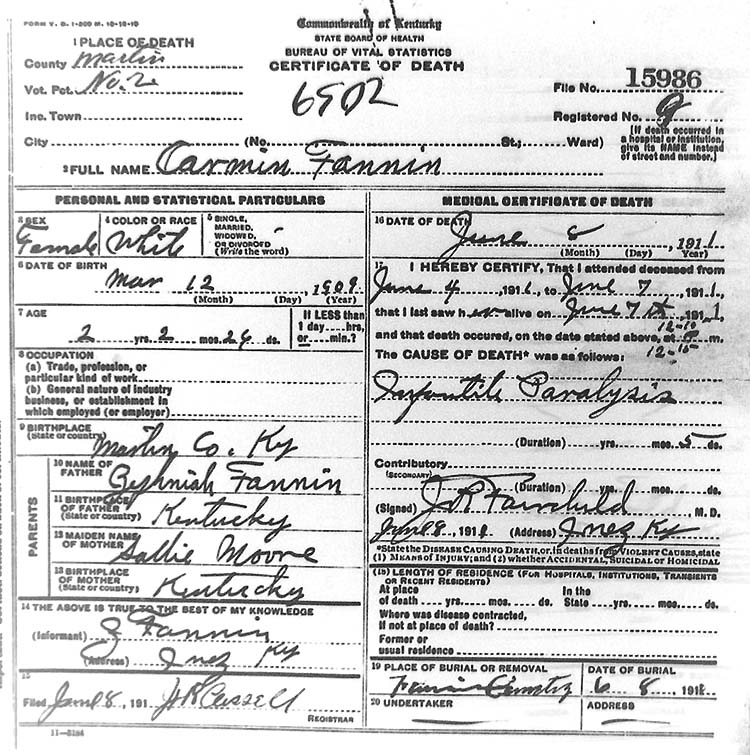 FORM V. S. 1-200 M. 10-10-10
Commonwealth of Kentucky
STATE BOARD OF HEALTH
BUREAU OF VITAL STATISTICS
CERTIFICATE OF DEATH
1 PLACE OF DEATH
County Martin
Vot. Pct. No. 2
Inc. Town
City (No. St.; Ward)
6502
File No. 15986
Registered No. 9
(If death occurred in
a hospital or institution,
give its NAME instead
of street and number.)
2 FULL NAME Carmin Fannin
PERSONAL AND STATISTICAL PARTICULARS
3 SEX
Female
4 COLOR OR RACE
White
5 SINGLE,
MARRIED,
WIDOWED,
OR DIVORCED
(Write the word)
6 DATE OF BIRTH
Mar 12, 1909
(Month) (Day) (Year)
7 AGE
2 yrs. 2 mos. 26 ds.
If LESS than
1 day....hrs.
or....min.?
8 OCCUPATION
(a) Trade, profession, or
particular kind of work
(b) General nature of industry
business, or establishment in
which employed (or employer)
9 BIRTHPLACE
(State or country) Martin Co. Ky
PARENTS
10 NAME OF
FATHER Fannin
11 BIRTHPLACE
OF FATHER
(State or country) Kentucky
12 MAIDEN NAME
OF MOTHER Sallie Moore
13 BIRTHPLACE
OF MOTHER
(State or country) Kentucky
14 THE ABOVE IS TRUE TO THE BEST OF MY KNOWLEDGE
(Informant) Z Fannin
(Address) Inez Ky
15
Filed June 8, 191 Cassell
REGISTRAR
11-3184
MEDICAL CERTIFICATE OF DEATH
16 DATE OF DEATH
June 8, 1911
(Month) (Day) (Year)
17 I HEREBY CERTIFY, That I attended deceased from
June 4, 1911, to June 7, 1911,
that I last saw her alive on June 7th, 1911,
12-10
and that death occurred, on the date stated above, at m.
12-15
The CAUSE OF DEATH* was as follows:
Infantile Paralysis
(Duration) yrs. mos. 5 ds.
Contributory
(SECONDARY)
(Duration) yrs. mos. ds.
(Signed) J R Fairchild M. D.
June 8, 1911 (Address) Inez Ky
*State the DISEASE CAUSING DEATH, or, in deaths from VIOLENT CAUSES, state
(1) MEANS OF INJURY; and (2) whether ACCIDENTAL, SUICIDAL or HOMICIDAL
(18) LENGTH OF RESIDENCE (FOR HOSPITALS, INSTITUTIONS, TRANSIENTS
OR RECENT RESIDENTS)
At place
of death yrs. mos. ds.
In the
State yrs. mos. ds.
Where was disease contracted,
If not at place of death?
Former or
usual residence
19 PLACE OF BURIAL OR REMOVAL
Fannin Cemetry
DATE OF BURIAL
6 8, 1911
20 UNDERTAKER
ADDRESS